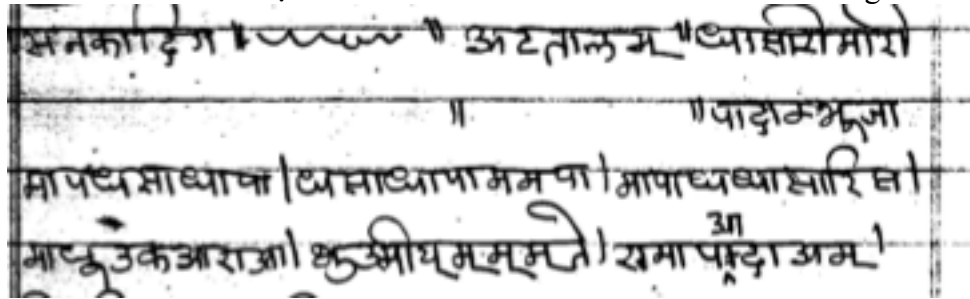 सनकादिग ॥ ॥ अटतालम ॥ धासारीमोरो
॥ ॥ पादाम्भूजा
मापधसाधापा । धसाधापाममपा । मापाधधासारिस ।
उकआराआ । यमममते । रामा पादाअम ।